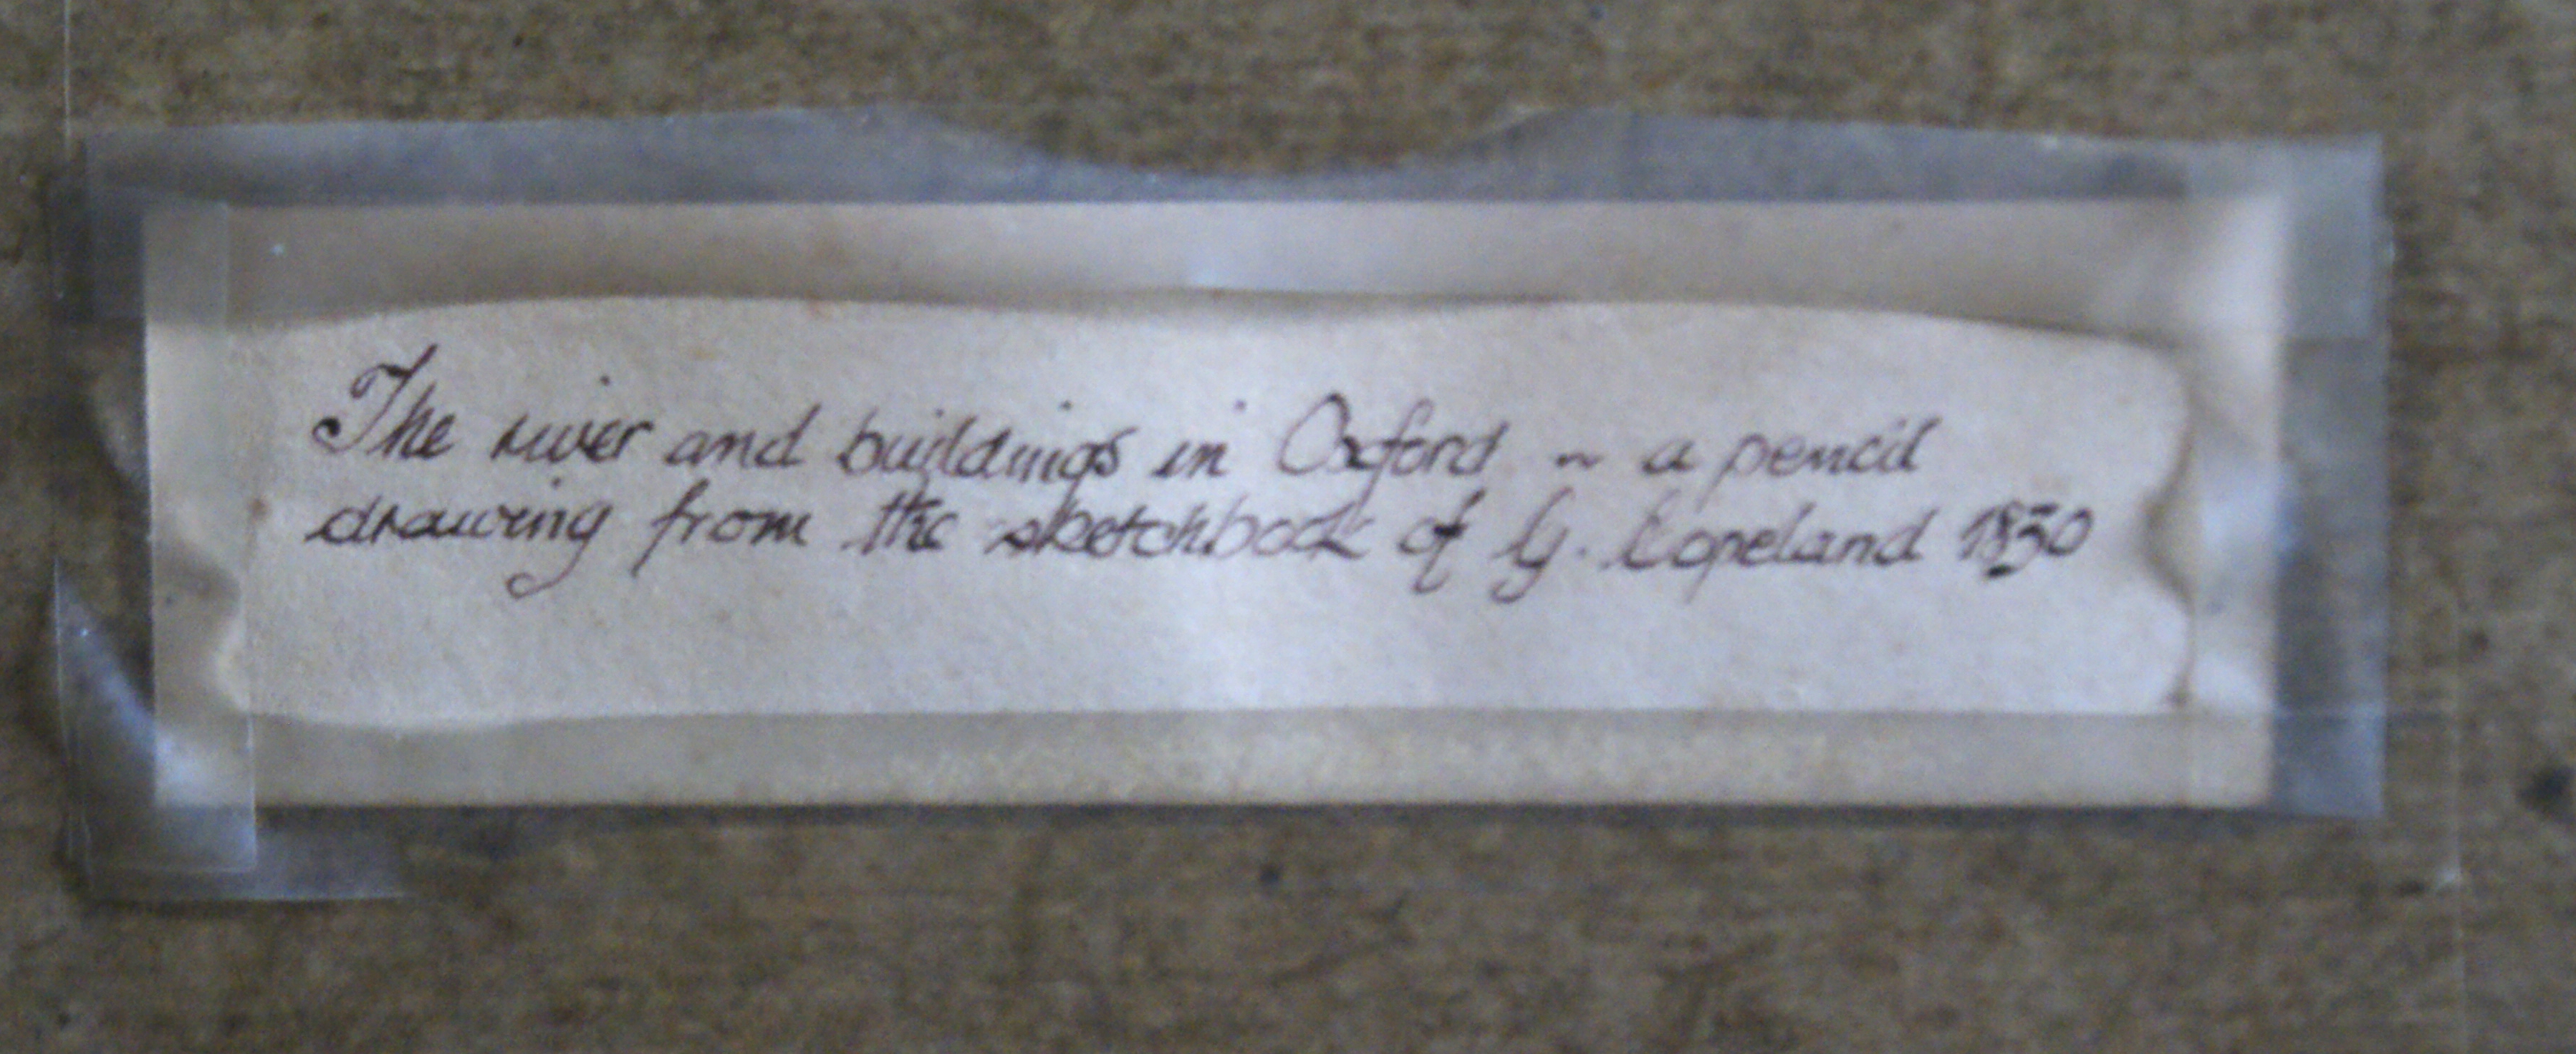 The river and buildings in Oxford ~ a pencil
drawing from the sketchbook of G. Copeland 1830